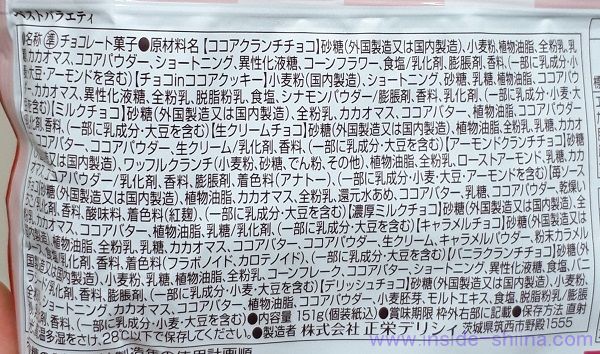 ベストバラエティ
●名称 準チョコレート菓子●原材料名【ココアクランチチョコ】砂糖(外国製造又は国内製造)、小麦粉、植物油脂、全粉乳、乳
糖、カカオマス、ココアパウダー、ショートニング、異性化液糖、コーンフラワー、食塩/乳化剤、膨脹剤、香料、(一部に乳成分・小
麦・大豆・アーモンドを含む)【チョコinココアクッキー】小麦粉(国内製造)、ショートニング、砂糖、乳糖、植物油脂、ココアパウ
ダー、カカオマス、異性化液糖、全粉乳、脱脂粉乳、食塩、シナモンパウダー/膨脹剤、香料、乳化剤、(一部に乳成分・小麦・大
を含む)【ミルクチョコ】砂糖(外国製造又は国内製造)、全粉乳、カカオマス、ココアバター、植物油脂、ココアパウダー、
/乳化剤、香料、(一部に乳成分・大豆を含む)【生クリームチョコ】砂糖(外国製造又は国内製造)、植物油脂、全粉乳、乳糖、カカオ
ココアバター、ココアパウダー、生クリーム/乳化剤、香料、(一部に乳成分・大豆を含む)【アーモンドクランチチョコ】砂糖
又は国内製造)、ワッフルクランチ(小麦粉、砂糖、でん粉、その他)、植物油脂、全粉乳、ローストアーモンド、乳糖、カカオ
ココアパウダー/乳化剤、香料、膨脹剤、着色料(アナトー)、(一部に乳成分・小麦・大豆・アーモンドを含む)【苺ソース
チョコ】砂糖(外国製造又は国内製造)、植物油脂、カカオマス、全粉乳、還元水あめ、ココアバター、乳糖、ココアパウダー、乾燥い
乳化剤、香料、酸味料、着色料(紅麹)、(一部に乳成分・大豆を含む)【濃厚ミルクチョコ】砂糖(外国製造又は国内製造)、全粉
乳、カカオマス、ココアバター、植物油脂、乳糖/乳化剤、(一部に乳成分・大豆を含む)【キャラメルチョコ】砂糖(外国製造又は
国内製造)、植物油脂、全粉乳、乳糖、カカオマス、ココアバター、ココアパウダー、生クリーム、キャラメルパウダー、粉末カラメル
ソース、食塩/乳化剤、香料、着色料(フラボノイド、カロテノイド)、(一部に乳成分・大豆を含む)【バニラクランチチョコ】砂糖(外
国製造又は国内製造)、小麦粉、乳糖、植物油脂、全粉乳、コーンフレーク、ココアバター、ショートニング、異性化液糖、食塩、バニ
ラ/乳化剤、香料、膨脹剤、(一部に乳成分・小麦・大豆を含む)【デリッシュチョコ】砂糖(外国製造又は国内製造)、小麦粉、
ショートニング、カカオマス、ココアバター、植物油脂、ココアパウダー、小麦胚芽、モルトエキス、食塩、脱脂粉乳/膨脹
剤、香料、(一部に乳成分・小麦・大豆を含む)●内容量 151g(個装紙込)●賞味期限 枠外右部に記載●保存方法 直射
高温多湿をさけ、28℃以下で保存してください。●製造者 株式会社 正栄デリシィ 茨城県筑西市野殿1555
www.inside-shima.com